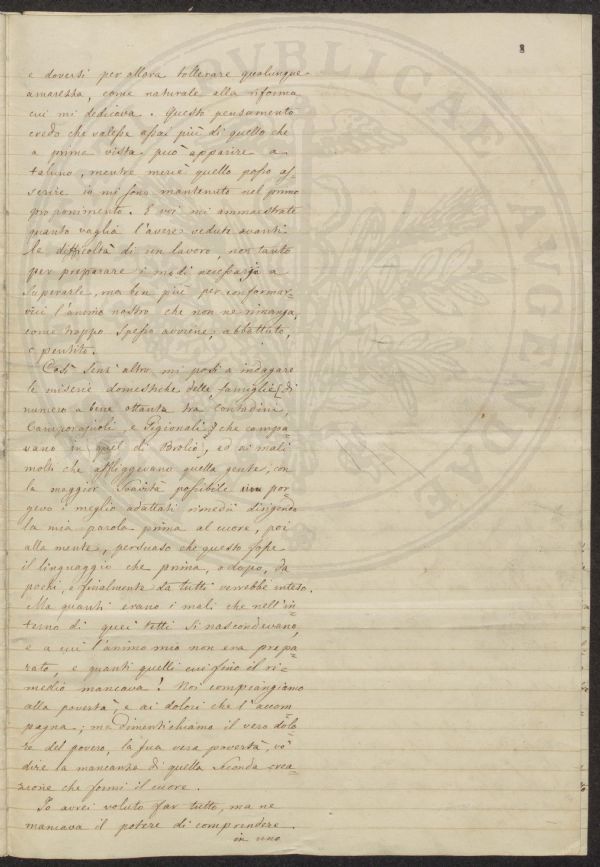 8
e doversi per allora tollerare qualunque
amarezza, come naturale alla riforma
cui mi dedicava. Questo pensamento
credo che valesse assai più di quello che
a prima vista può apparire a
taluno, mentre mercè quello posso as=
serire io mi sono mantenuto nel primo
proponimento. E voi mi ammaestrate
quanto vaglia l'avere vedute avanti
le difficoltà di un lavoro, non tanto
per preparare i modi necessarj a
superarle, ma ben più per conformar=
vici l'animo nostro che non ne rimanga,
come troppo spesso avviene, abbattuto,
e pentito.
Così senz'altro mi posi a indagare
le miserie domestiche delle famiglie (di
numero a bene ottanta tra Contadini,
Camporajuoli e Pigionali) che campa=
vano in quel di Brolio, ed ai mali
molti che affliggevano quella gente, con
la maggior soavità possibile por=
gevo i meglio adattati rimedii dirigendo
la mia parola prima al cuore, poi
alla mente, persuaso che questo fosse
il linguaggio che prima, o dopo, da
pochi, e finalmente da tutti verrebbe inteso.
Ma quanti erano i mali che nell'in=
terno di quei tetti si nascondevano,
e a cui l'animo mio non era prepa=
rato, e quanti quelli cui fino il ri=
medio mancava! Noi compiangiamo
alla povertà, e ai dolori che l'accom
pagna; ma dimentichiamo il vero dolo=
re del povero, la sua vera povertà, vo'
dire la mancanza di quella seconda crea=
zione che formi il cuore.
Io avrei voluto far tutto, ma ne
mancava il potere di comprendere
in uno
PUBLICA